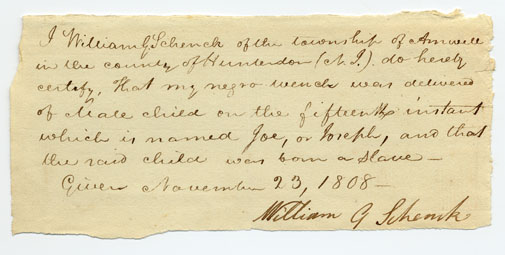 I William G Schenck of the township of Amwell
in the county of Hunterdon (N. J.). do hereby
certify, That my negro wench was delivered
of Male child on the fifteenth instant
which is named Joe, or Joseph, and that
the said child was born a Slave —
Given November 23, 1808 —
William G Schenck